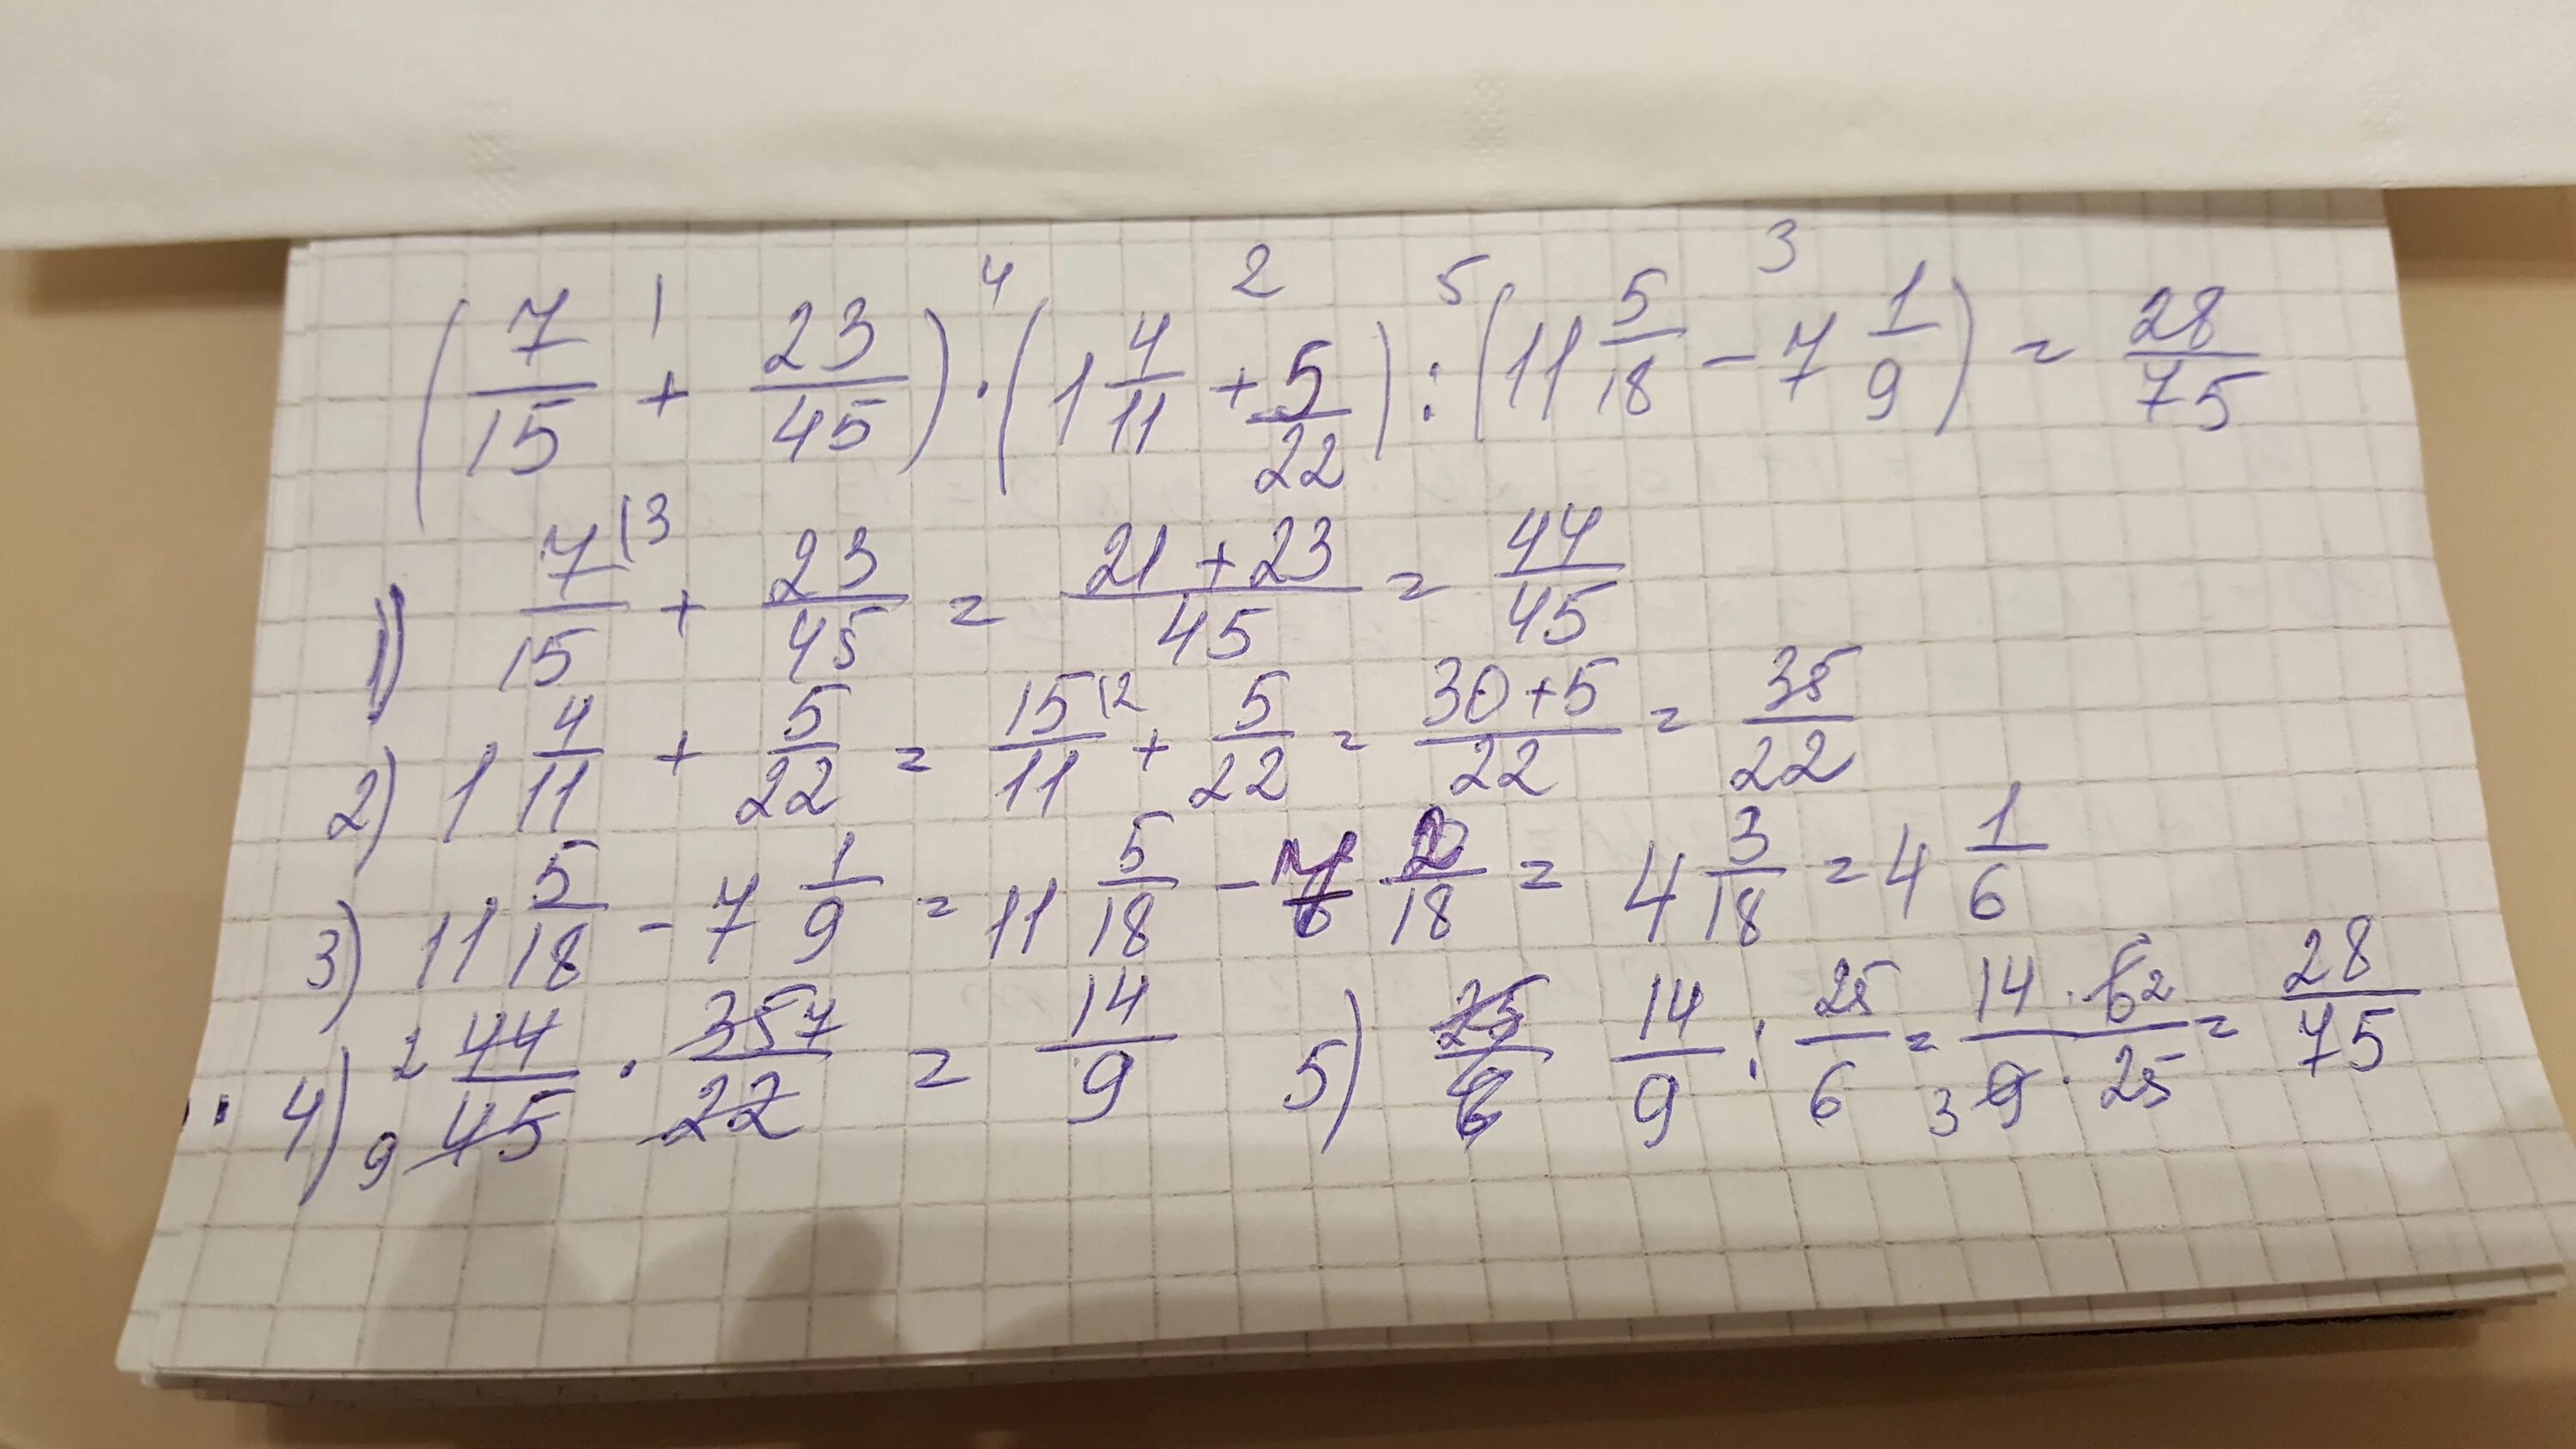 (7/15 + 23/45) · (1 4/11 + 5/22) : (11 5/18 - 7 1/9) = 28/75
1) 7/15 |3 + 23/45 = 21+23/45 = 44/45
2) 1 4/11 + 5/22 = 15/11 |2 + 5/22 = 30+5/22 = 35/22
3) 11 5/18 - 7 1/9 = 11 5/18 - 7 2/18 = 4 3/18 = 4 1/6
4) 2 44/9 45 · 35 7/22 = 14/9 5) 25/6 14/9 : 25/6 = 14 · 6 2/3 9 · 25 = 28/75